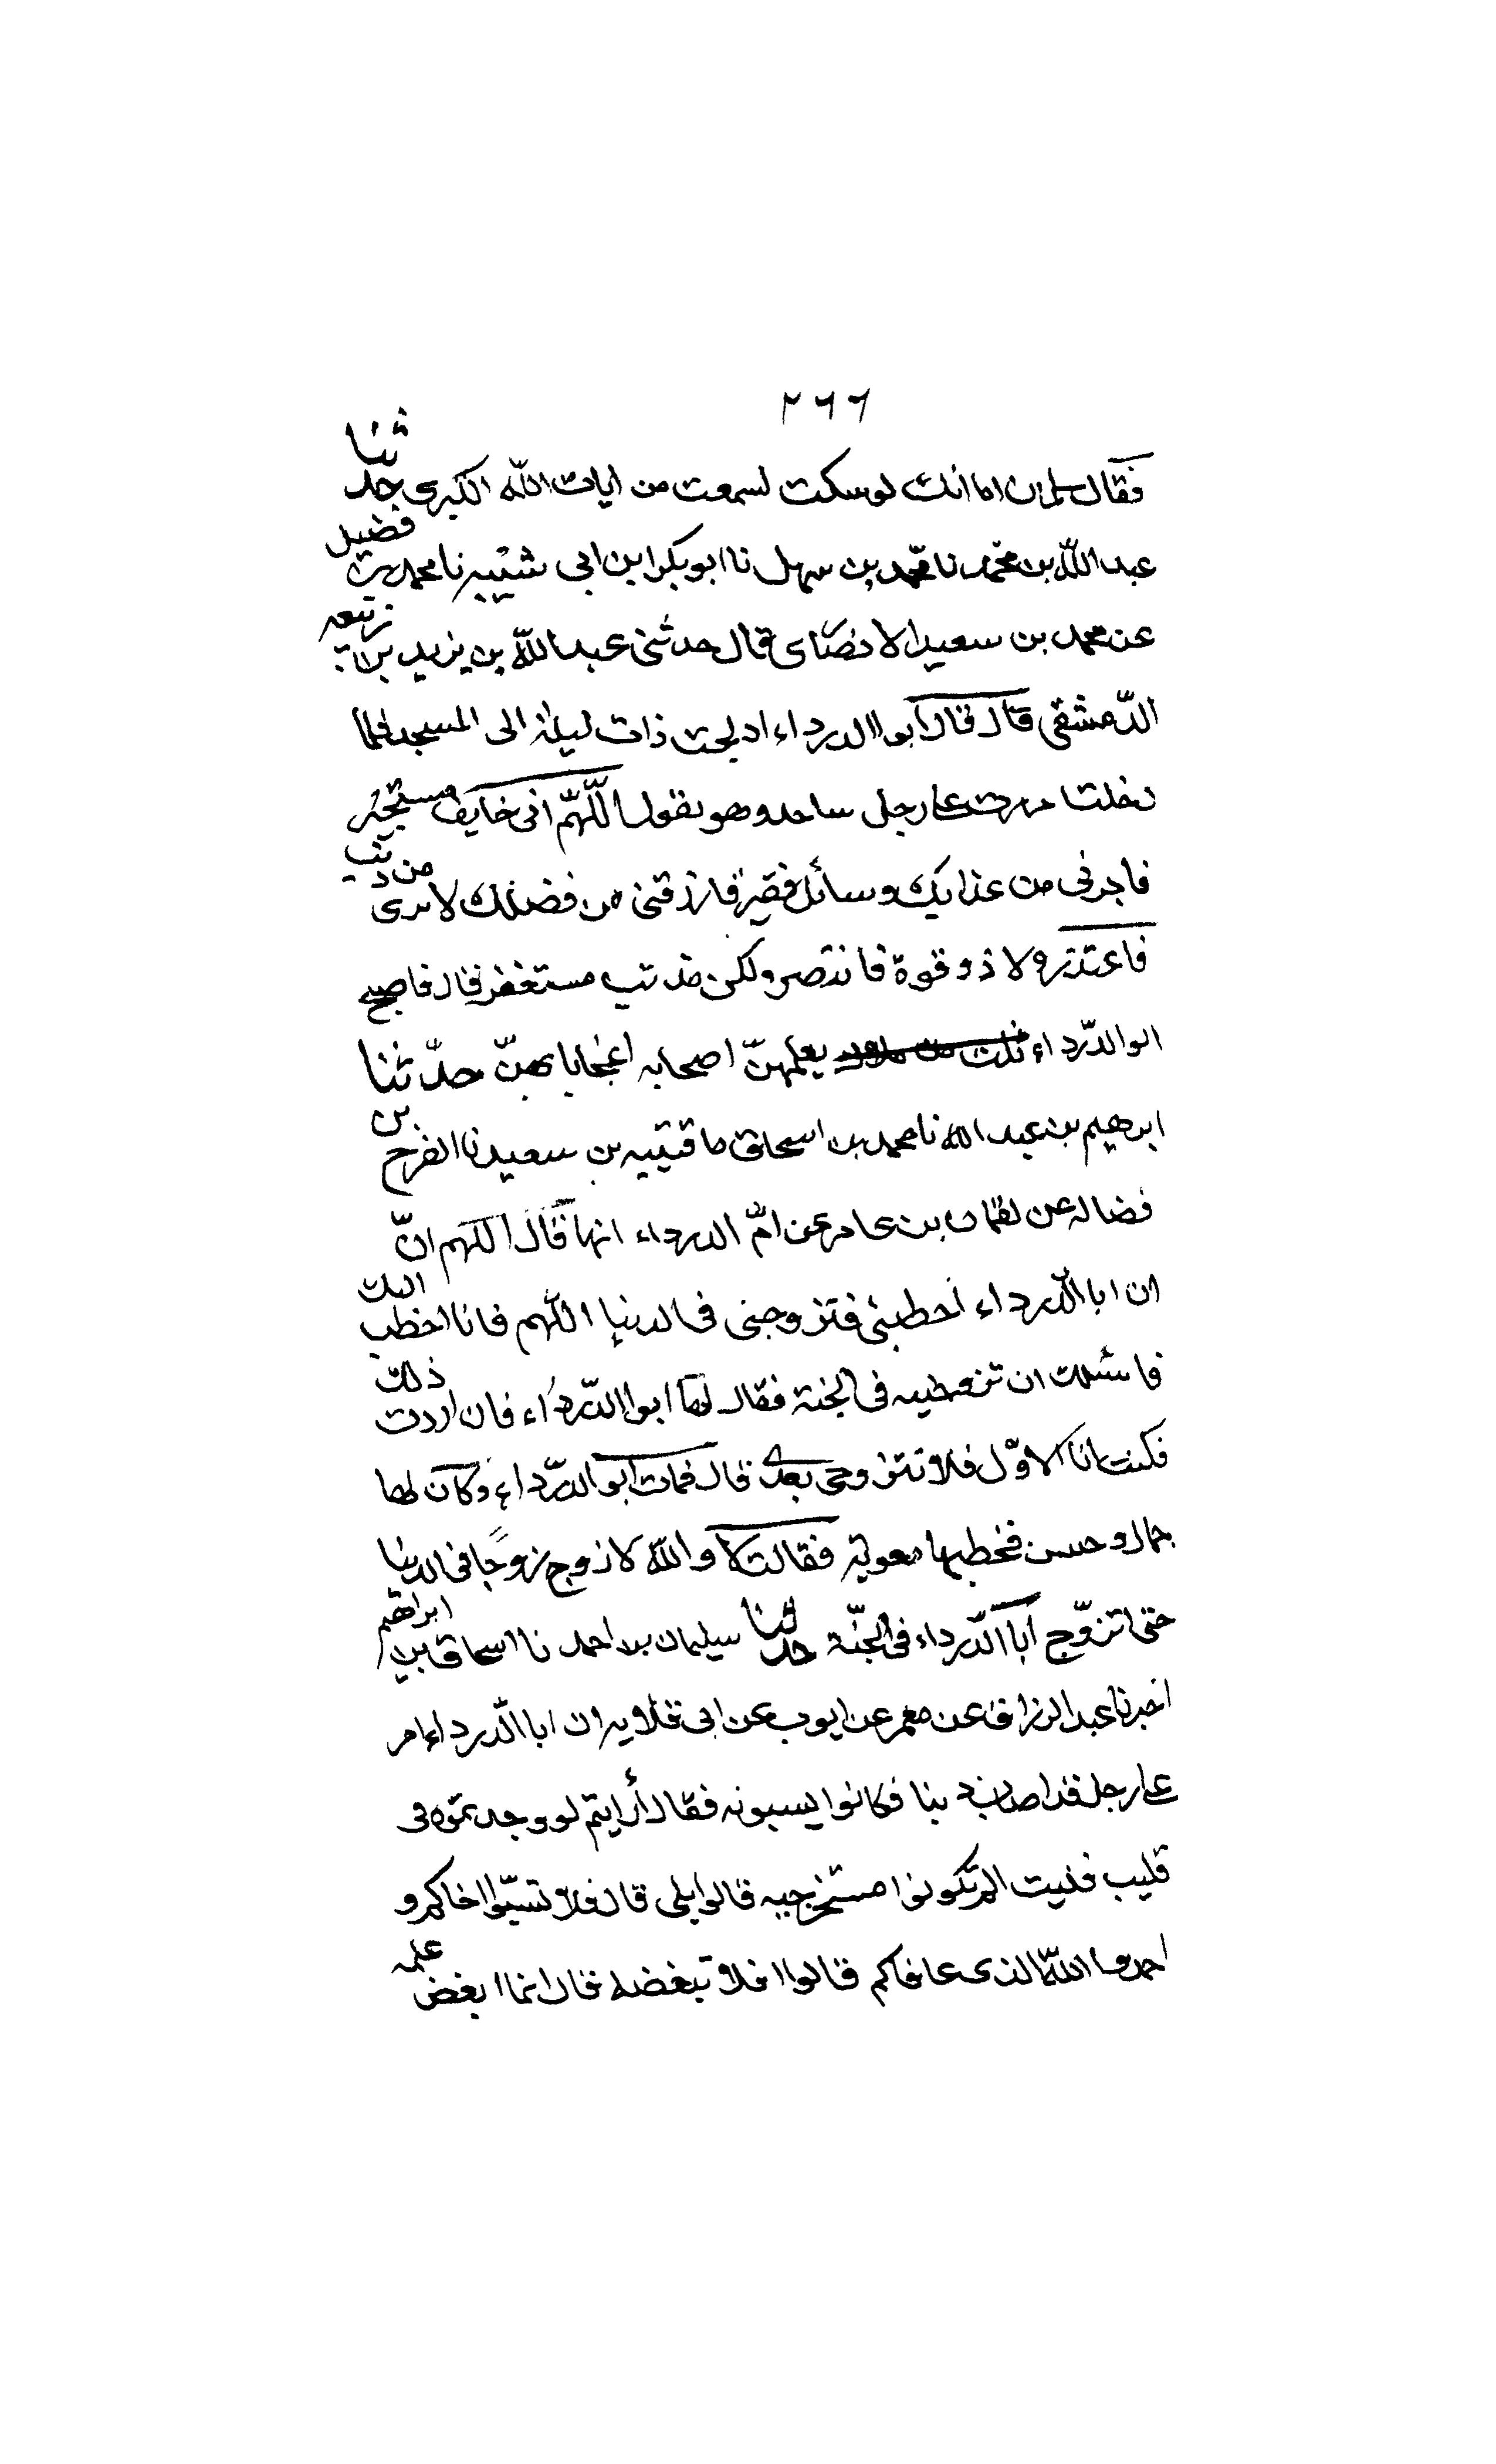 ٢٦٦
فقال سلمان اما انك لو سكت لسمعت من ايات الله الكبرى حدثنا
عبد الله بن محمد نا محمد بن سهل نا ابو بكر ابن ابى شيبه نا محمد بن فضيل
عن محمد بن سعيد الانصاى قال حدثنى عبد الله بن يزيد بن ربيعه
الدّمشقى قال قال ابو االدرداء ادلجت ذات ليلة الى المسجد فلما
دخلت مررت على رجل ساجد وهو يقول اللّهمّ انى خايف مستجير
فاجرنى من عذابك وسائل فقير فارزقنى من فضلك لا برى من ذنب
فاعتذر ولا ذو قوة فانتصر ولكن مذنب مستغفر قال فاصبح
ابو الدّرداء يعلمهنّ اصحابه اعجابا بهنّ حدّثنا
ابرهيم بن عبد الله نا محمد بن اسحاق نا قتيبه بن سعيد نا الفرج بن
فضاله عن لقمان بن عامر عن امّ الدرداء انها قال اللهم انّ
ان ابا الدّرداء خطبنى فتزوجنى فى الدنيا اللّهم فانا اخطب اليك
فاسئلك ان تزوجنيه فى الجنة فقال لها ابوا الدّرداء فان اردت ذلك
فكنت انا الاوّل فلا تتزوجى بعدى قال فمات ابو الدّرداء وكان لها
جمال وحسن فخطبها معوية فقالت لا والله لا ازوج زوجًا فى الدنيا
حتى اتزوّج ابا الدّرداء فى الجنّة حدثنا سليمان بن احمد نا اسحاق بن ابراهيم
اخبرنا عبد الرزاق عن معمر عن ايوب عن ابى قلابه ان ابا الدّرداء مر
على رجل قد اصاب ذنبا فكانوا يسبونه فقال أرايتم لو وجدتموه فى
قليب فليت الم تكونوا مستخرجيه قالوا بلى قال فلا تسبّوا اخاكم و
احمدوا اللّه الذى عافاكم قالوا افلا تبغضه قال انما ابغض عمله